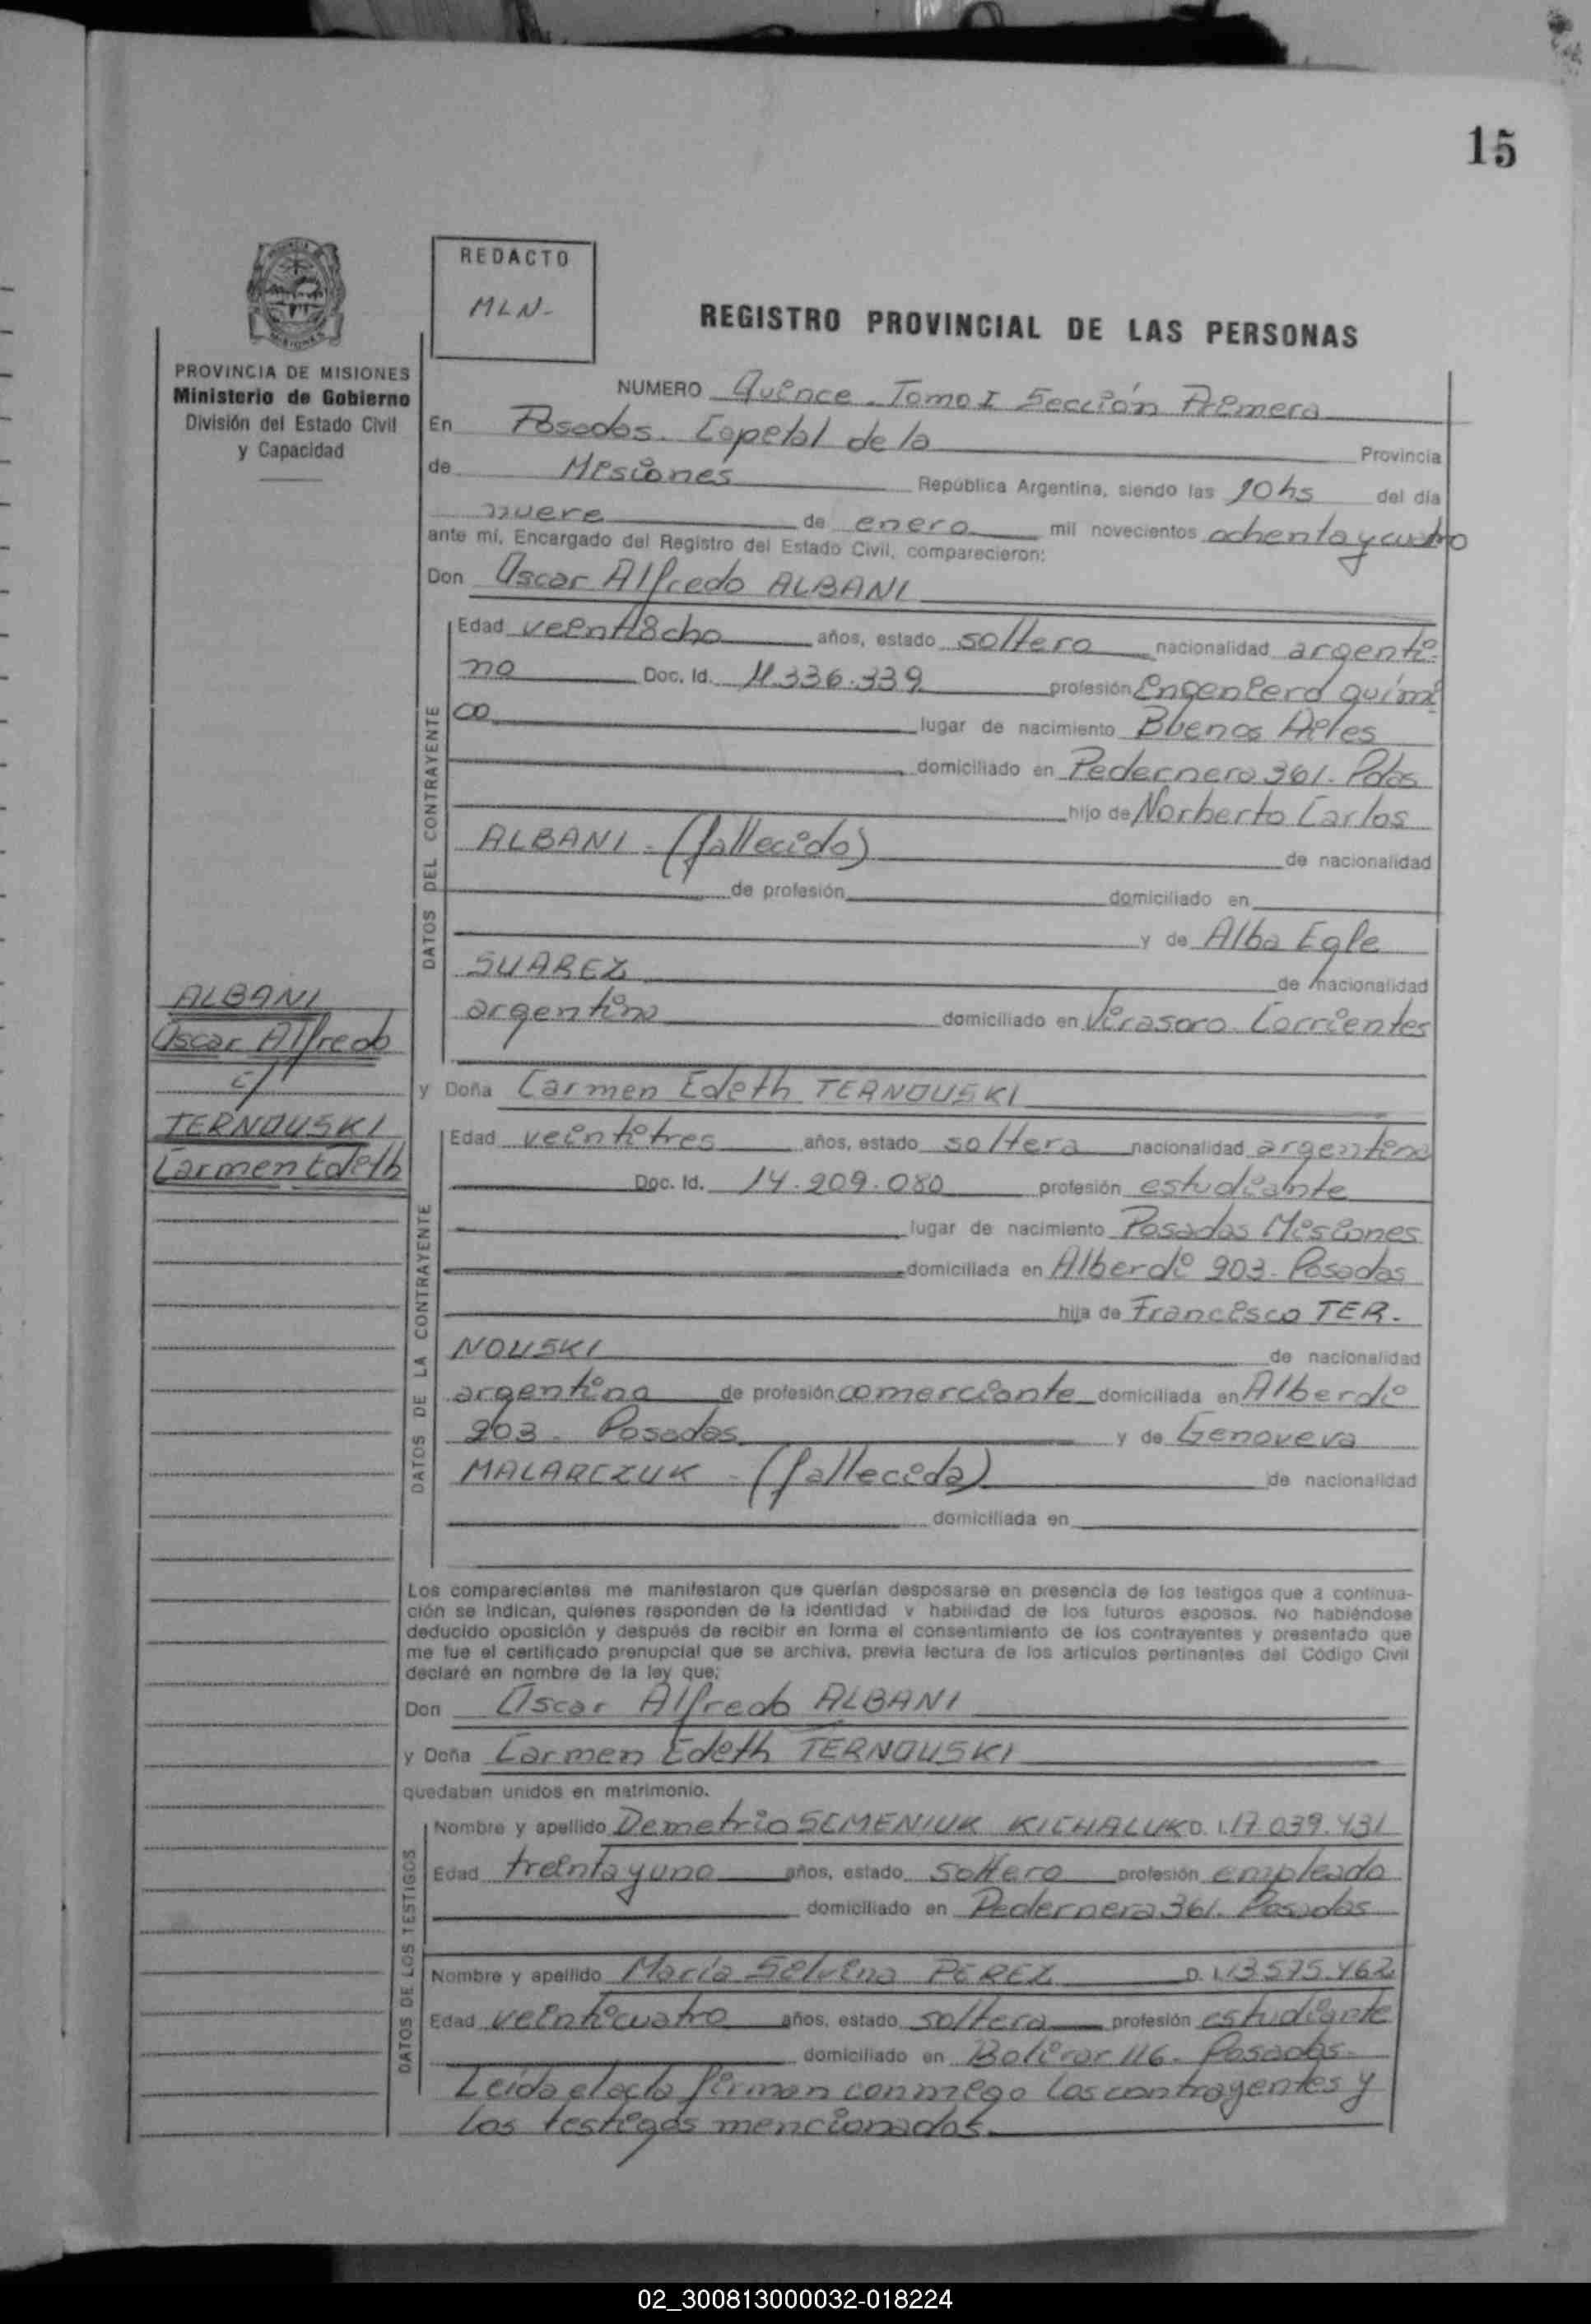 15
REDACTO
MLN-
REGISTRO PROVINCIAL DE LAS PERSONAS
PROVINCIA DE MISIONES
Ministerio de Gobierno
División del Estado Civil
y Capacidad
NUMERO Quince. Tomo I Sección Primera
En Posadas. Capital de la Provincia
de Misiones República Argentina, siendo las 10hs del día
nueve de enero mil novecientos ochenta y cuatro
ante mí, Encargado del Registro del Estado Civil, comparecieron:
Don Oscar Alfredo ALBANI
DATOS DEL CONTRAYENTE
Edad veintiocho años, estado soltero nacionalidad argenti-
no Doc. Id. 11.336.339 profesión Ingeniero quími
co lugar de nacimiento Buenos Aires
domiciliado en Pedernera 361. Pdas
hijo de Norberto Carlos
ALBANI - (fallecido) de nacionalidad
de profesión domiciliado en
y de Alba Egle
SUAREZ de nacionalidad
argentina domiciliado en Virasoro Corrientes
y Doña Carmen Edith TERNOUSKI
ALBANI
Oscar Alfredo
c/
TERNOUSKI
Carmen Edith
DATOS DE LA CONTRAYENTE
Edad veintitres años, estado soltera nacionalidad argentina
Doc. Id. 14.209.080 profesión estudiante
lugar de nacimiento Posadas Misiones
domiciliada en Alberdi 903. Posadas
hija de Francisco TER-
NOUSKI de nacionalidad
argentina de profesión comerciante domiciliada en Alberdi
903. Posadas y de Genoveva
MALARCZUK - (fallecida) de nacionalidad
domiciliada en
Los comparecientes me manifestaron que querían desposarse en presencia de los testigos que a continua-
ción se indican, quienes responden de la identidad y habilidad de los futuros esposos. No habiéndose
deducido oposición y después de recibir en forma el consentimiento de los contrayentes y presentado que
me fue el certificado prenupcial que se archiva, previa lectura de los artículos pertinentes del Código Civil
declaré en nombre de la ley que:
Don Oscar Alfredo ALBANI
y Doña Carmen Edith TERNOUSKI
quedaban unidos en matrimonio.
DATOS DE LOS TESTIGOS
Nombre y apellido Demetrio SEMENIUK KICHALUK D. I. 17.039.431
Edad treinta y uno años, estado soltero profesión empleado
domiciliado en Pedernera 361. Posadas
Nombre y apellido María Silvina PEREZ D. I. 13.575.462
Edad veinticuatro años, estado soltera profesión estudiante
domiciliado en Bolivar 116. Posadas-
Leída el acta firman conmigo los contrayentes y
los testigos mencionados.
02_300813000032-018224